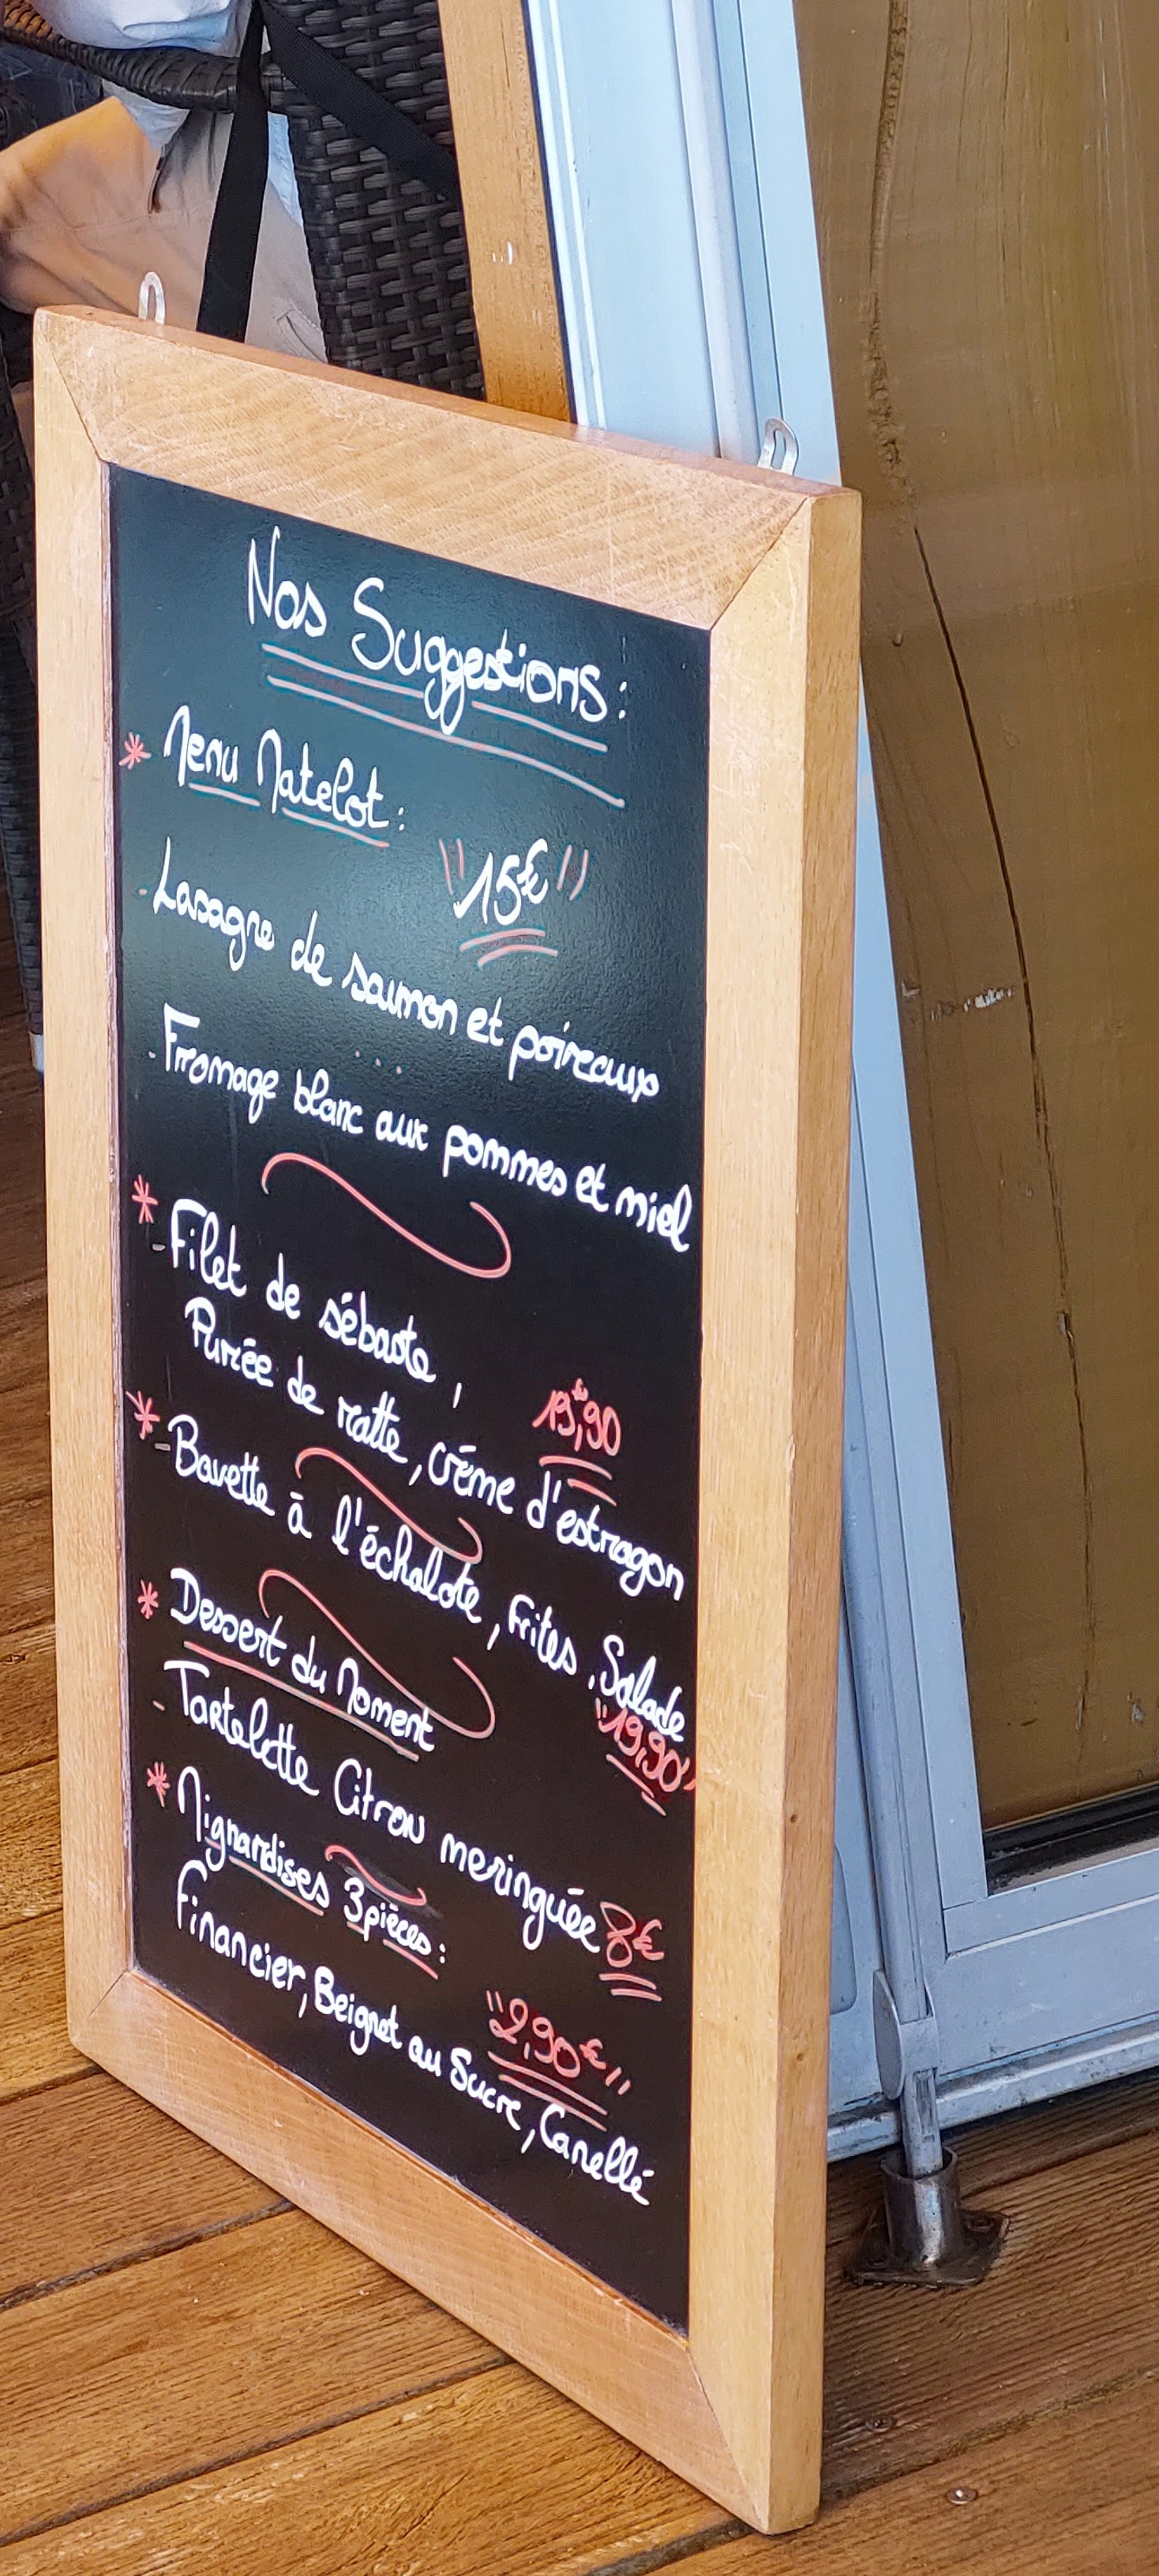 Nos Suggestions :
* Menu Matelot :
"15€"
- Lasagne de saumon et poireaux
...
- Fromage blanc aux pommes et miel
* - Filet de sébaste,
Purée de ratte, crème d'estragon
* - Bavette à l'échalote, Frites, Salade
"19,90"
* Dessert du Moment
- Tartelette Citron meringuée 8€
* Mignardises 3 pièces :
"2,90€"
Financier, Beignet au Sucre, Canellé